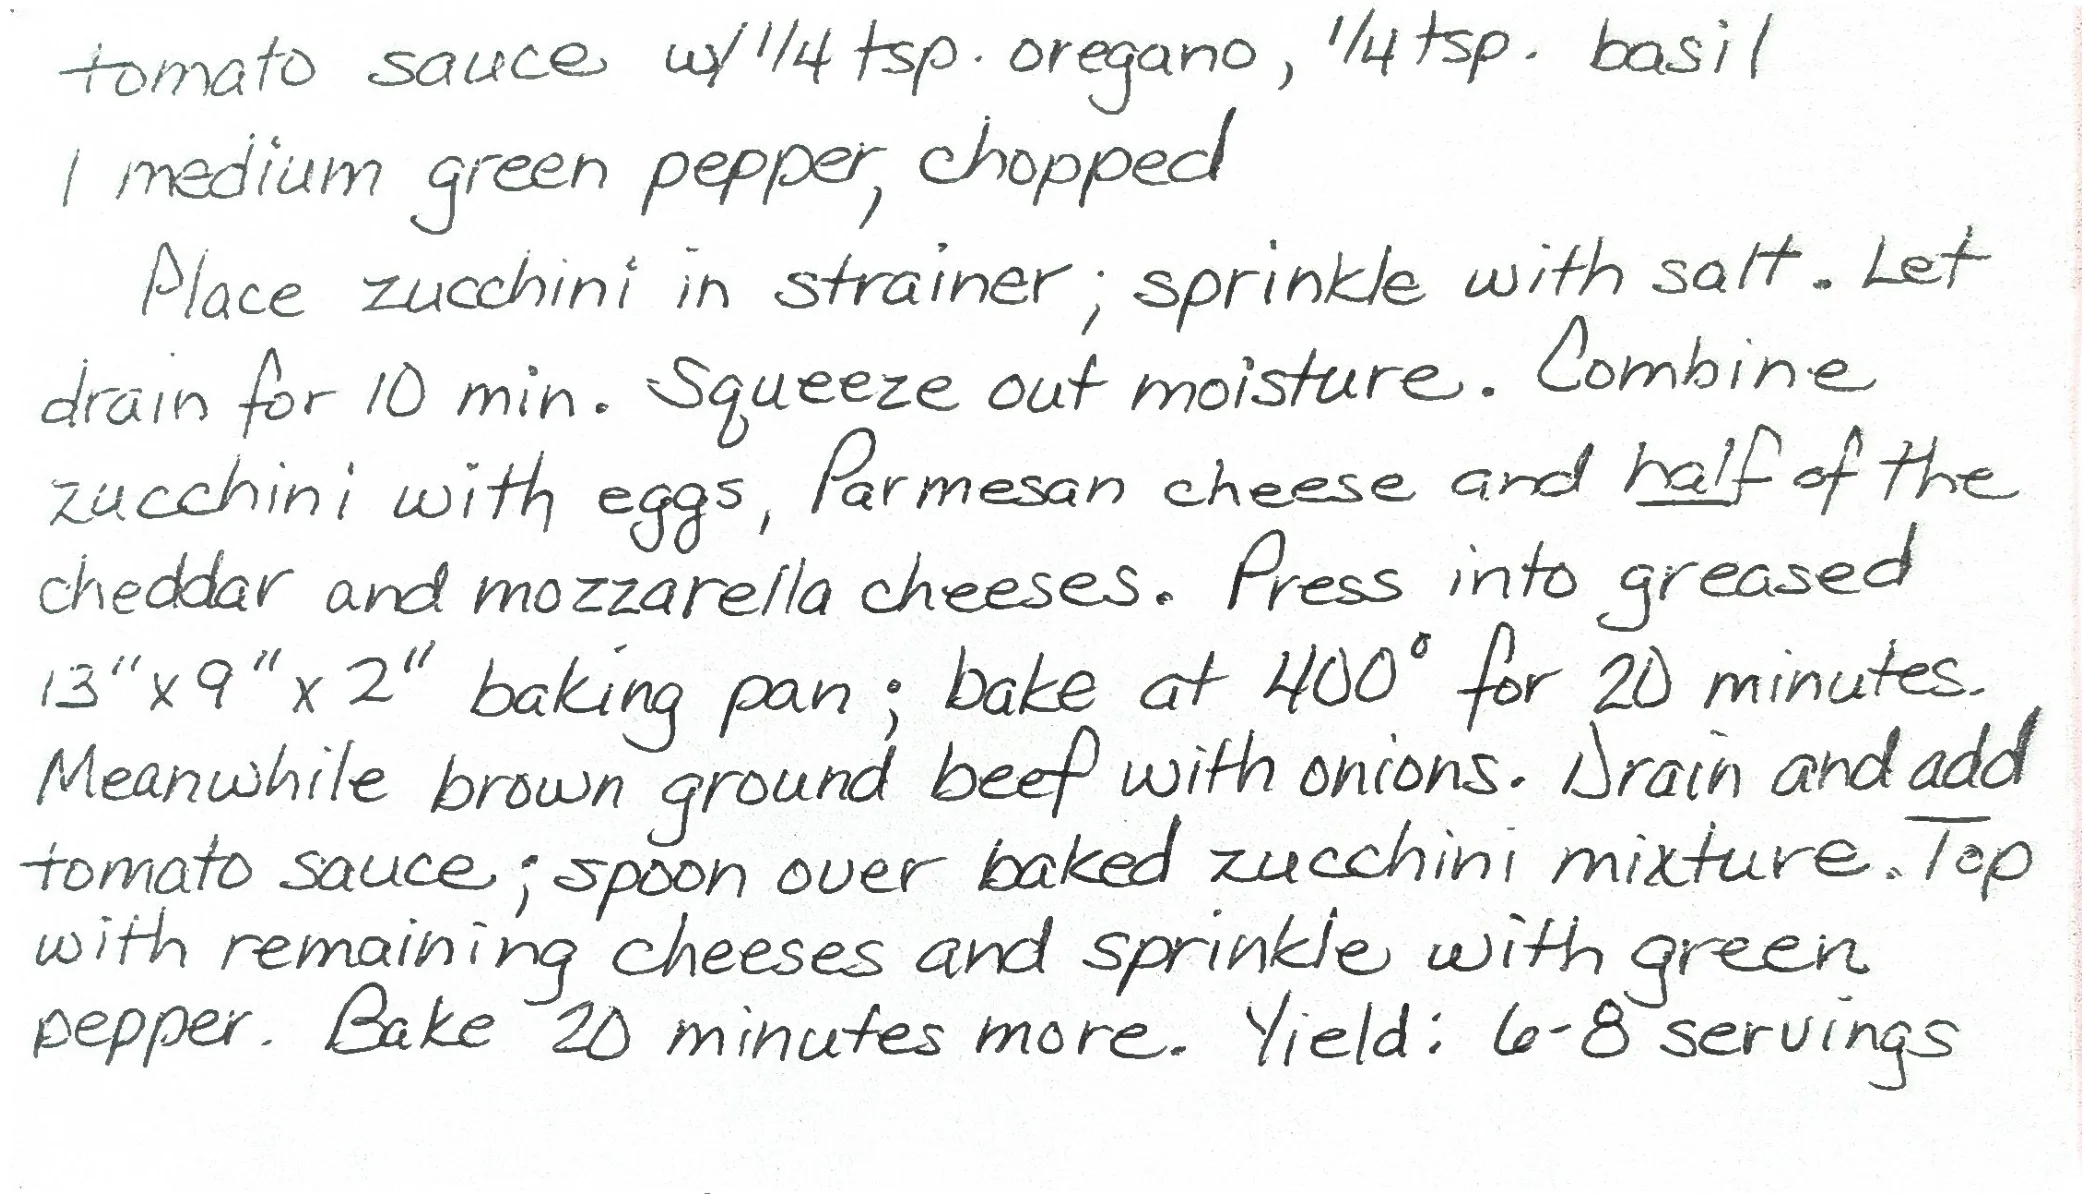 tomato sauce w/ 1/4 tsp. oregano, 1/4 tsp. basil
1 medium green pepper, chopped
Place zucchini in strainer; sprinkle with salt. Let
drain for 10 min. Squeeze out moisture. Combine
zucchini with eggs, Parmesan cheese and half of the
cheddar and mozzarella cheeses. Press into greased
13" x 9" x 2" baking pan; bake at 400° for 20 minutes.
Meanwhile brown ground beef with onions. Drain and add
tomato sauce; spoon over baked zucchini mixture. Top
with remaining cheeses and sprinkle with green
pepper. Bake 20 minutes more. Yield: 6-8 servings